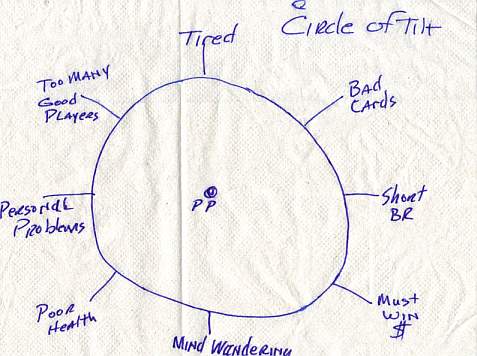 Circle of Tilt
Tired
Bad
Cards
Short
BR
Must
Win
$
Mind Wandering
Poor
Health
Personal
Problems
Too Many
Good
Players
PP